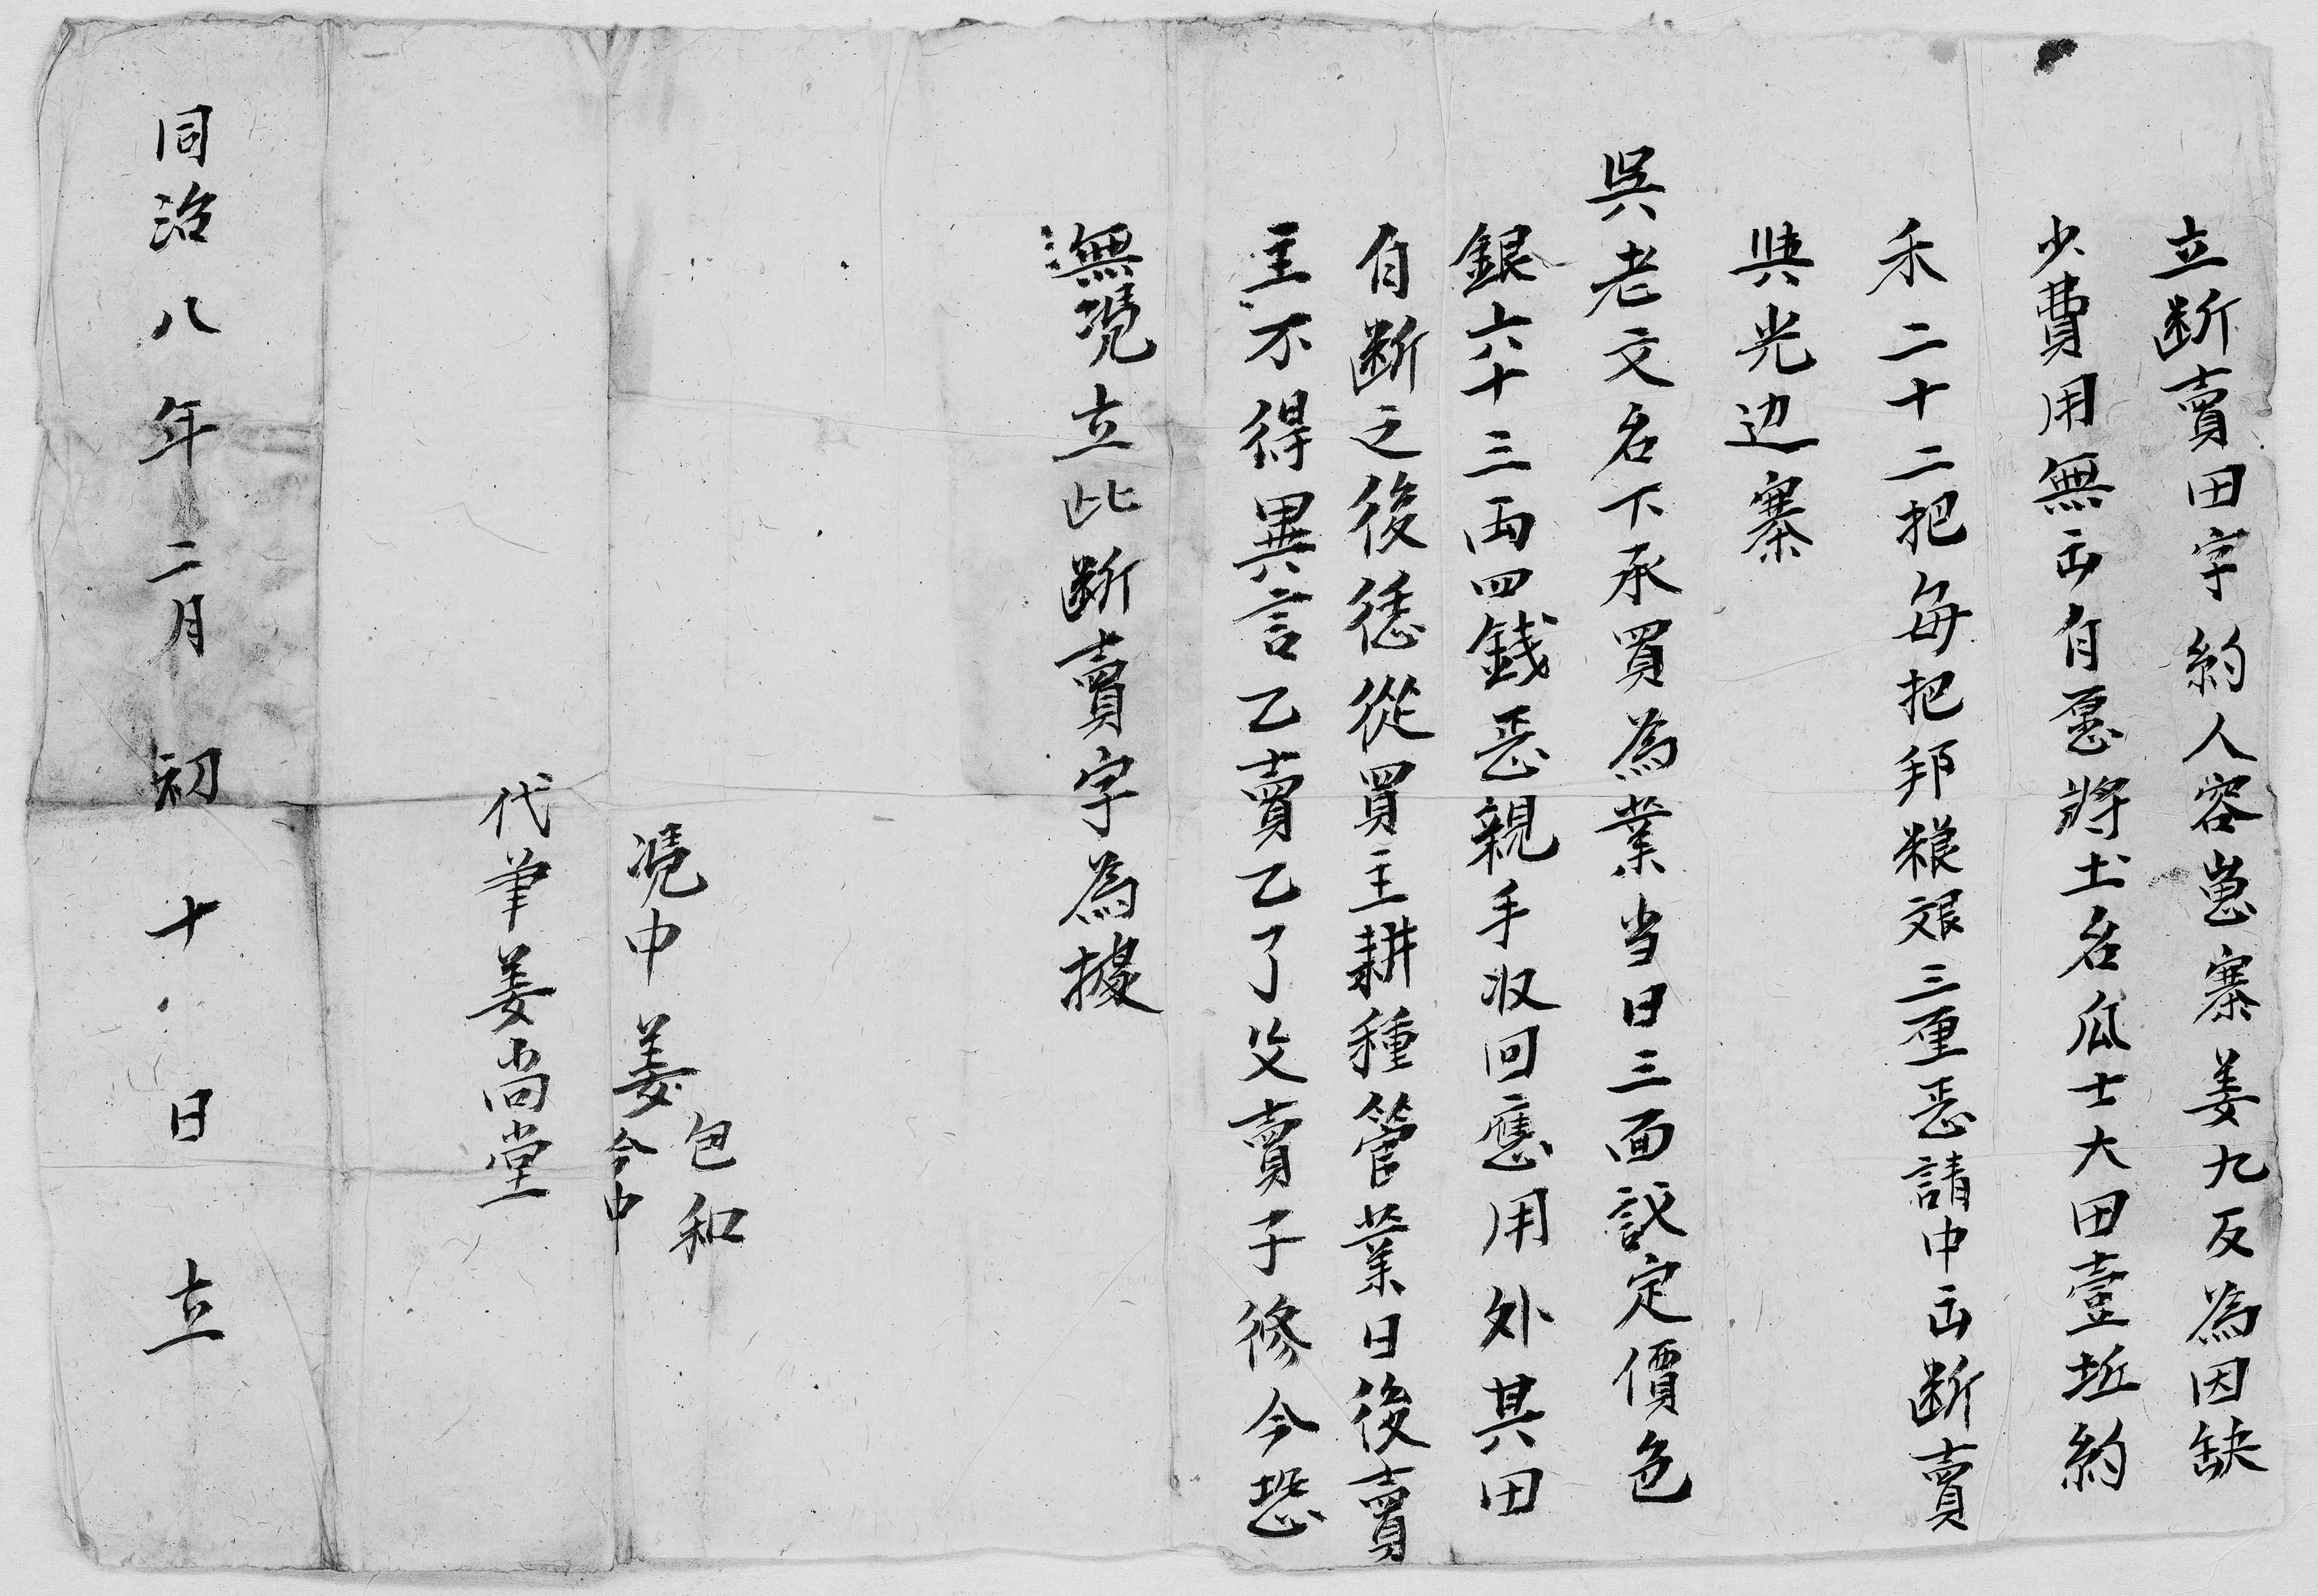 立断賣田字約人容嵬寨姜九反為因缺
少費用無出自愿將土名瓜士大田壹坵約
禾二十二把每把邦粮艰三厘悉請中出断賣
與光边寨
吳老文名下承買為業当日三面議定價色
銀六十三両四錢悉親手収回應用外其田
自断之後恁從買主耕種管業日後賣
主不得異言乙賣乙了父賣子修今恐
無凴立此断賣字為據
凴中姜包和
今中
代筆姜尚堂
同治八年二月初十日立